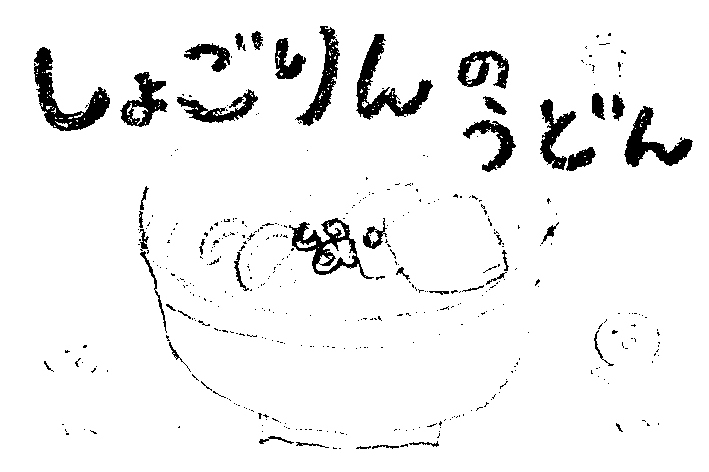 しょごりんの
うどん